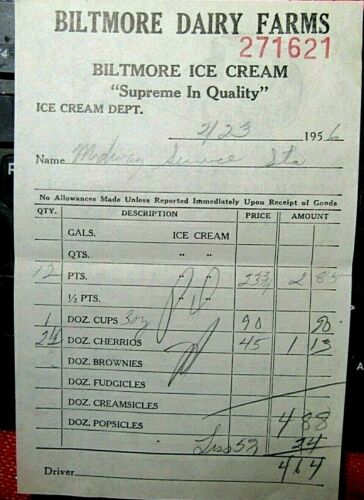 BILTMORE DAIRY FARMS
271621
BILTMORE ICE CREAM
"Supreme In Quality"
ICE CREAM DEPT.
2/23 1956
Name Midway Service Sta
No Allowances Made Unless Reported Immediately Upon Receipt of Goods
QTY. DESCRIPTION PRICE AMOUNT
GALS. ICE CREAM
QTS. " "
12 PTS. " " 23 3/4 2 85
½ PTS. " "
1 DOZ. CUPS 3oz 90 90
2½ DOZ. CHERRIOS 45 1 13
DOZ. BROWNIES
DOZ. FUDGICLES
DOZ. CREAMSICLES
DOZ. POPSICLES 4 88
Less 5% 24
Driver 4 64